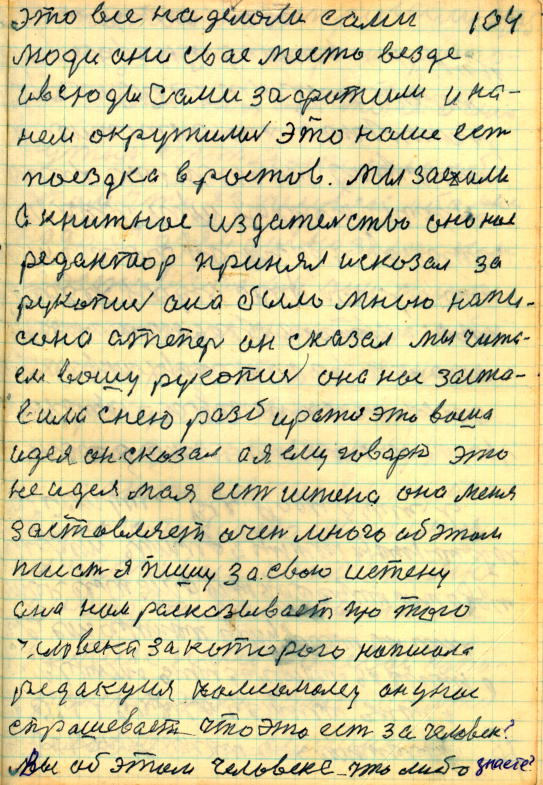 это все наделали сами 104
люди они свае месть везде
и всюды сами захватили и на-
нем окружили это наше ест
поездка в ростов. мы заехали
в книжное издательство оно нас
редактаор принял и сказал за
рукопис она было мною напи-
сана а тепер он сказал мы чита-
ем вашу рукопис она нас заста-
вила с нею разбирать это ваша
идея он сказал а я ему говарю это
не идея мая ест истена она меня
заставляет очен много об этом
писат я пишу за свою истену
она нам расказывает про того
человека за которого написала
редакция комсомолец он у нас
спрашевает что это ест за человек?
Вы об этом человеке что либо знаете?